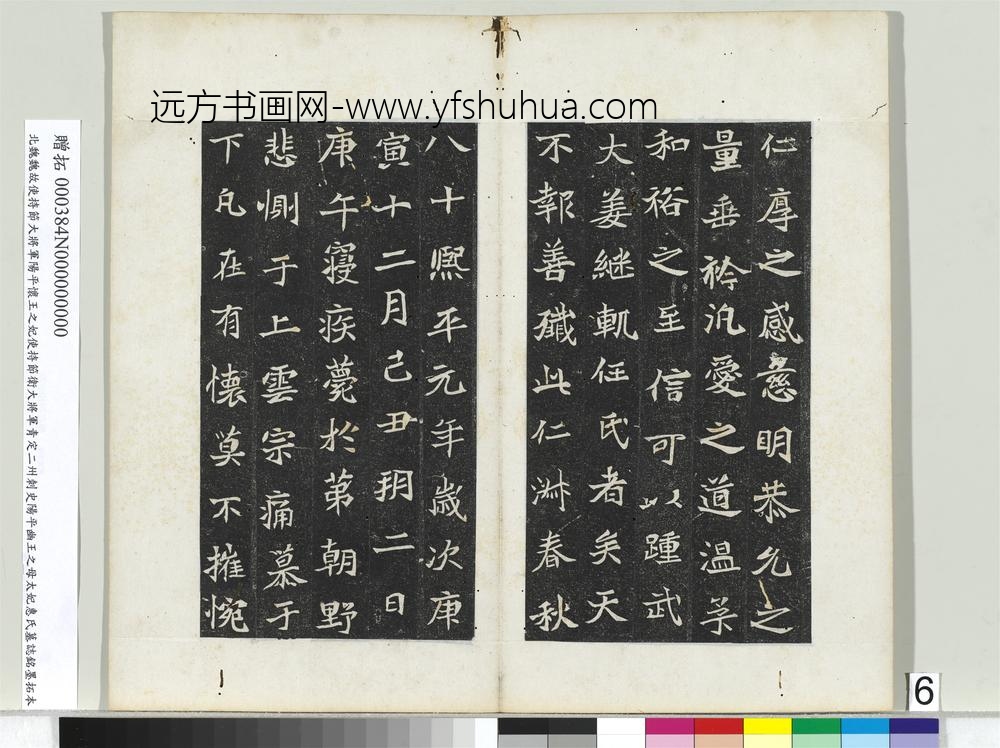 远方书画网-www.yfshuhua.com
仁厚之感慈明恭允之
量垂衿汎愛之道温柔
和裕之至信可以踵武
大姜継軌任氏者矣天
不報善殲此仁淑春秋
八十熙平元年歲次庚
寅十二月己丑朔二日
庚午寢疾薨於第朝野
悲惻于上雲宗痛慕于
下凡在有懷莫不摧惋
贈拓 000384N000000000
北魏魏故使持節大將軍陽平懷王之妃使持節衛大將軍青定二州刺史陽平幽王之母太妃惠氏墓誌銘墨拓本
6